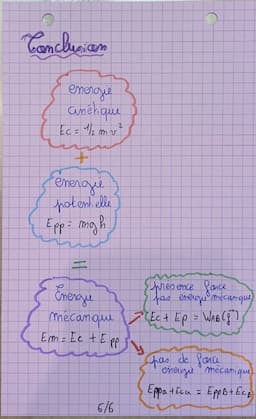 Conclusion
énergie
cinétique
Ec = 1/2 m v²
+
énergie
potentielle
Epp = mgh
=
Énergie
mécanique
Em = Ec + Epp
présence force
pas énergie mécanique
Ec + Ep = WAB(f)
pas de force
énergie mécanique
EppA + EcA = EppB + EcB
6/6